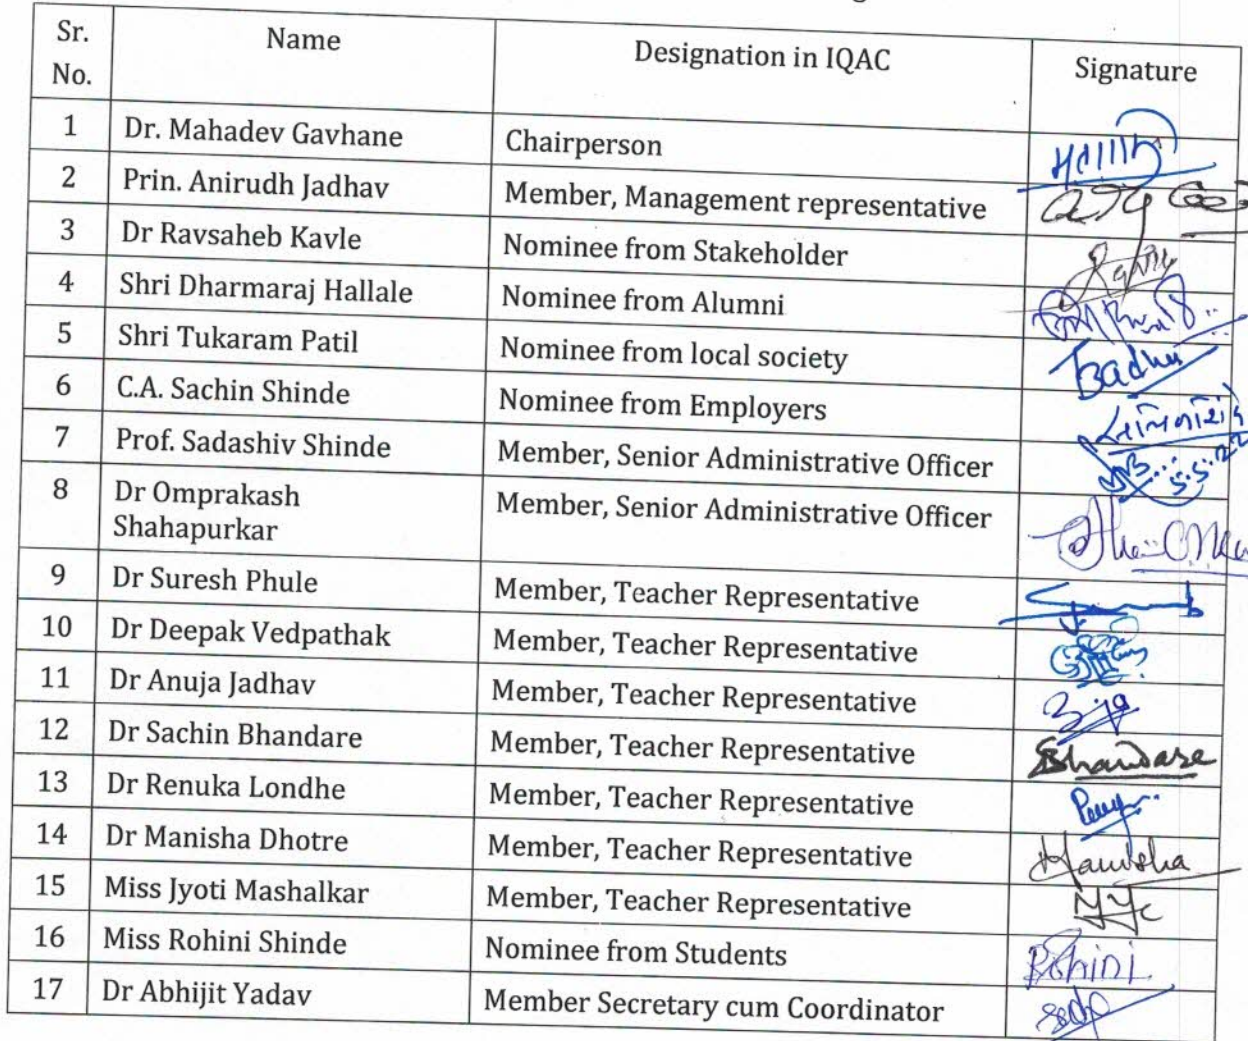 Sr. No. Name Designation in IQAC Signature
1 Dr. Mahadev Gavhane Chairperson
2 Prin. Anirudh Jadhav Member, Management representative
3 Dr Ravsaheb Kavle Nominee from Stakeholder
4 Shri Dharmaraj Hallale Nominee from Alumni
5 Shri Tukaram Patil Nominee from local society
6 C.A. Sachin Shinde Nominee from Employers
7 Prof. Sadashiv Shinde Member, Senior Administrative Officer
8 Dr Omprakash Member, Senior Administrative Officer
Shahapurkar
9 Dr Suresh Phule Member, Teacher Representative
10 Dr Deepak Vedpathak Member, Teacher Representative
11 Dr Anuja Jadhav Member, Teacher Representative
12 Dr Sachin Bhandare Member, Teacher Representative Bhandare
13 Dr Renuka Londhe Member, Teacher Representative
14 Dr Manisha Dhotre Member, Teacher Representative Manisha
15 Miss Jyoti Mashalkar Member, Teacher Representative
16 Miss Rohini Shinde Nominee from Students Rohini
17 Dr Abhijit Yadav Member Secretary cum Coordinator